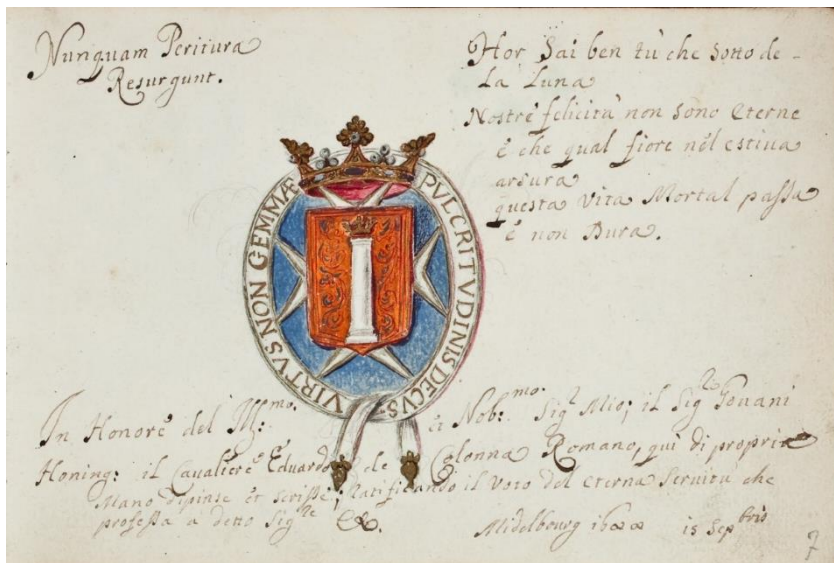 Nunquam Peritura
Resurgunt.
Hor Sai ben tù che sotto de-
La Luna
Nostre felicità non sono Eterne
è che qual fiore nèl estiua
arsura
questa Vita Mortal passa
è non Dura.
VIRTVS NON GEMMÆ PVLCRITVDINIS DECVS
In Honore del Ill:mo. et Nob:mo. Sigr Mio; il Sigre Iouani
Honing: il Cavaliere Eduardo de Colonna Romano, qui di propria
Mano dipinse et scrisse; Ratificando il Voto del eterna Seruitu che
professa à detto Sigre &.
Midelbourg 15 Sepbris
7